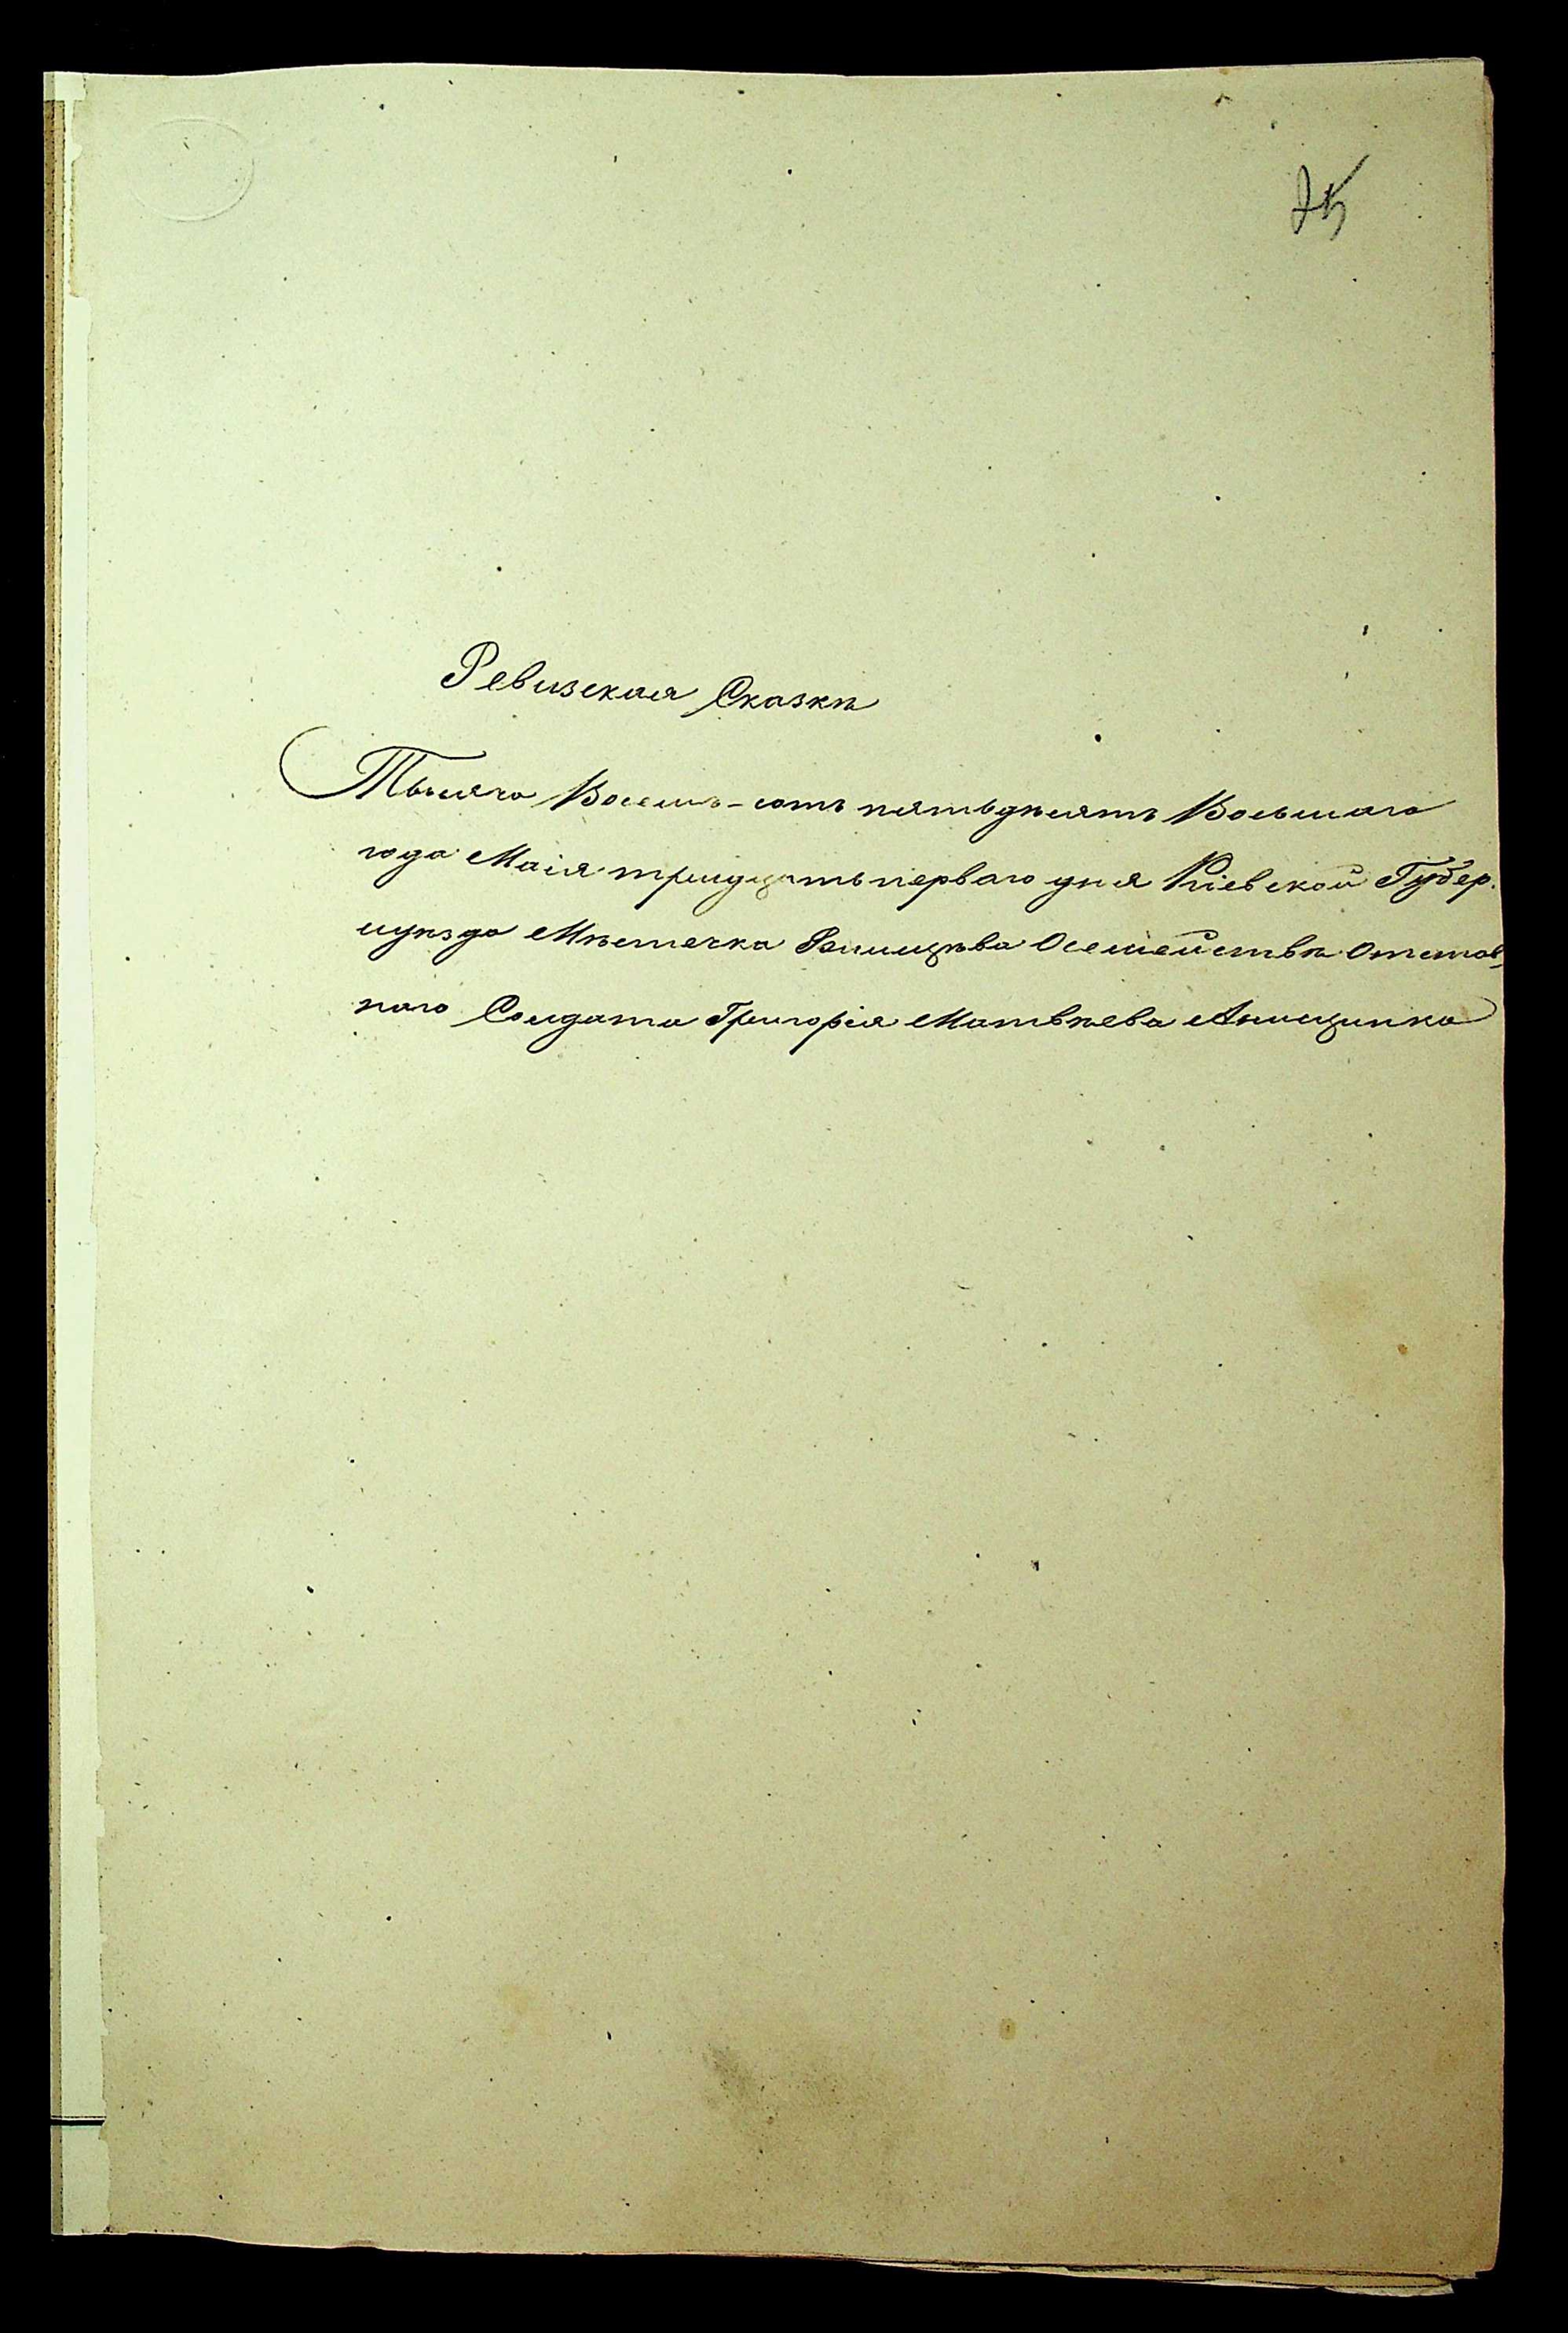 25
Ревизская Сказка
Тысяча Восемъ-сотъ пятьдѣсятъ Восьмаго
года Маія тридцать перваго дня Кіевской Губер.
иуѣзда Мѣстечка Осемействѣ Отстав-
наго Солдата Григорія Матвѣева Анищинка